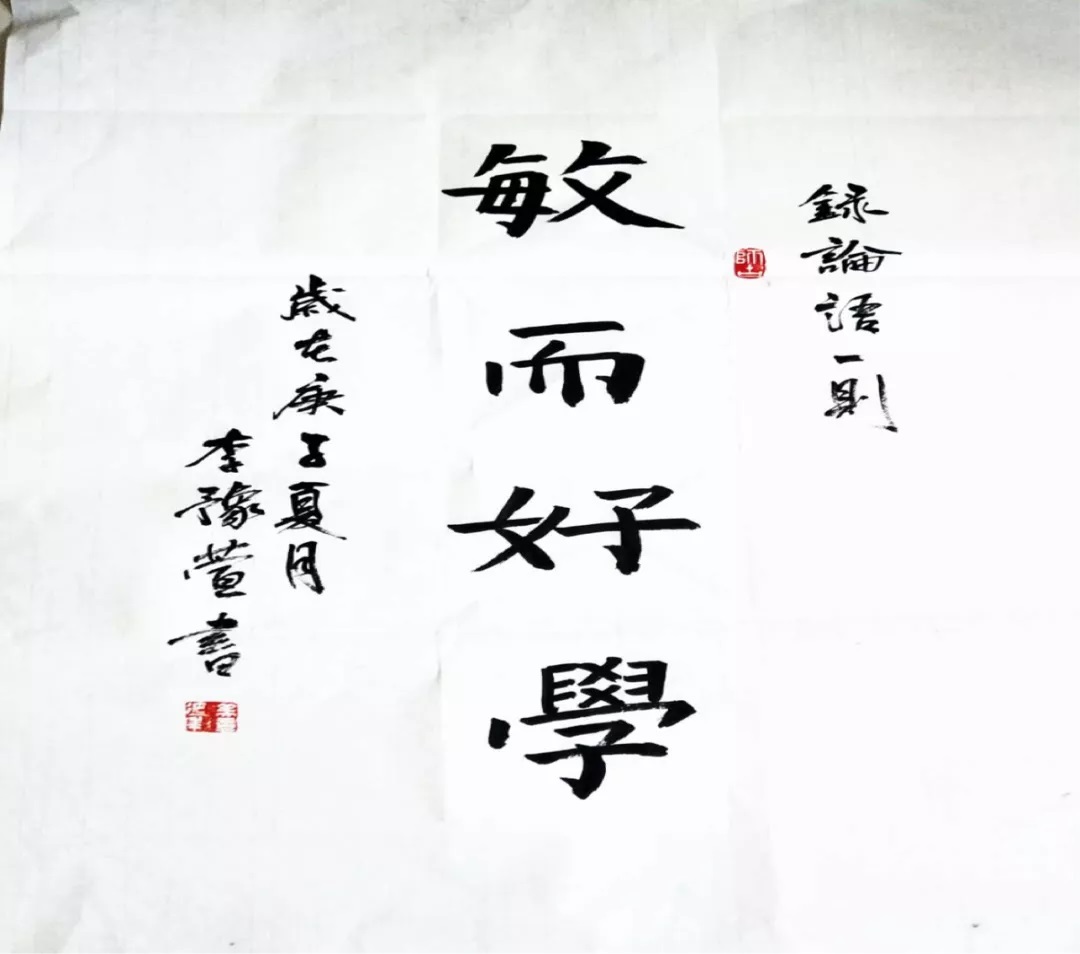 録論語一則
敏而好學
歲在庚子夏月
李豫萱書